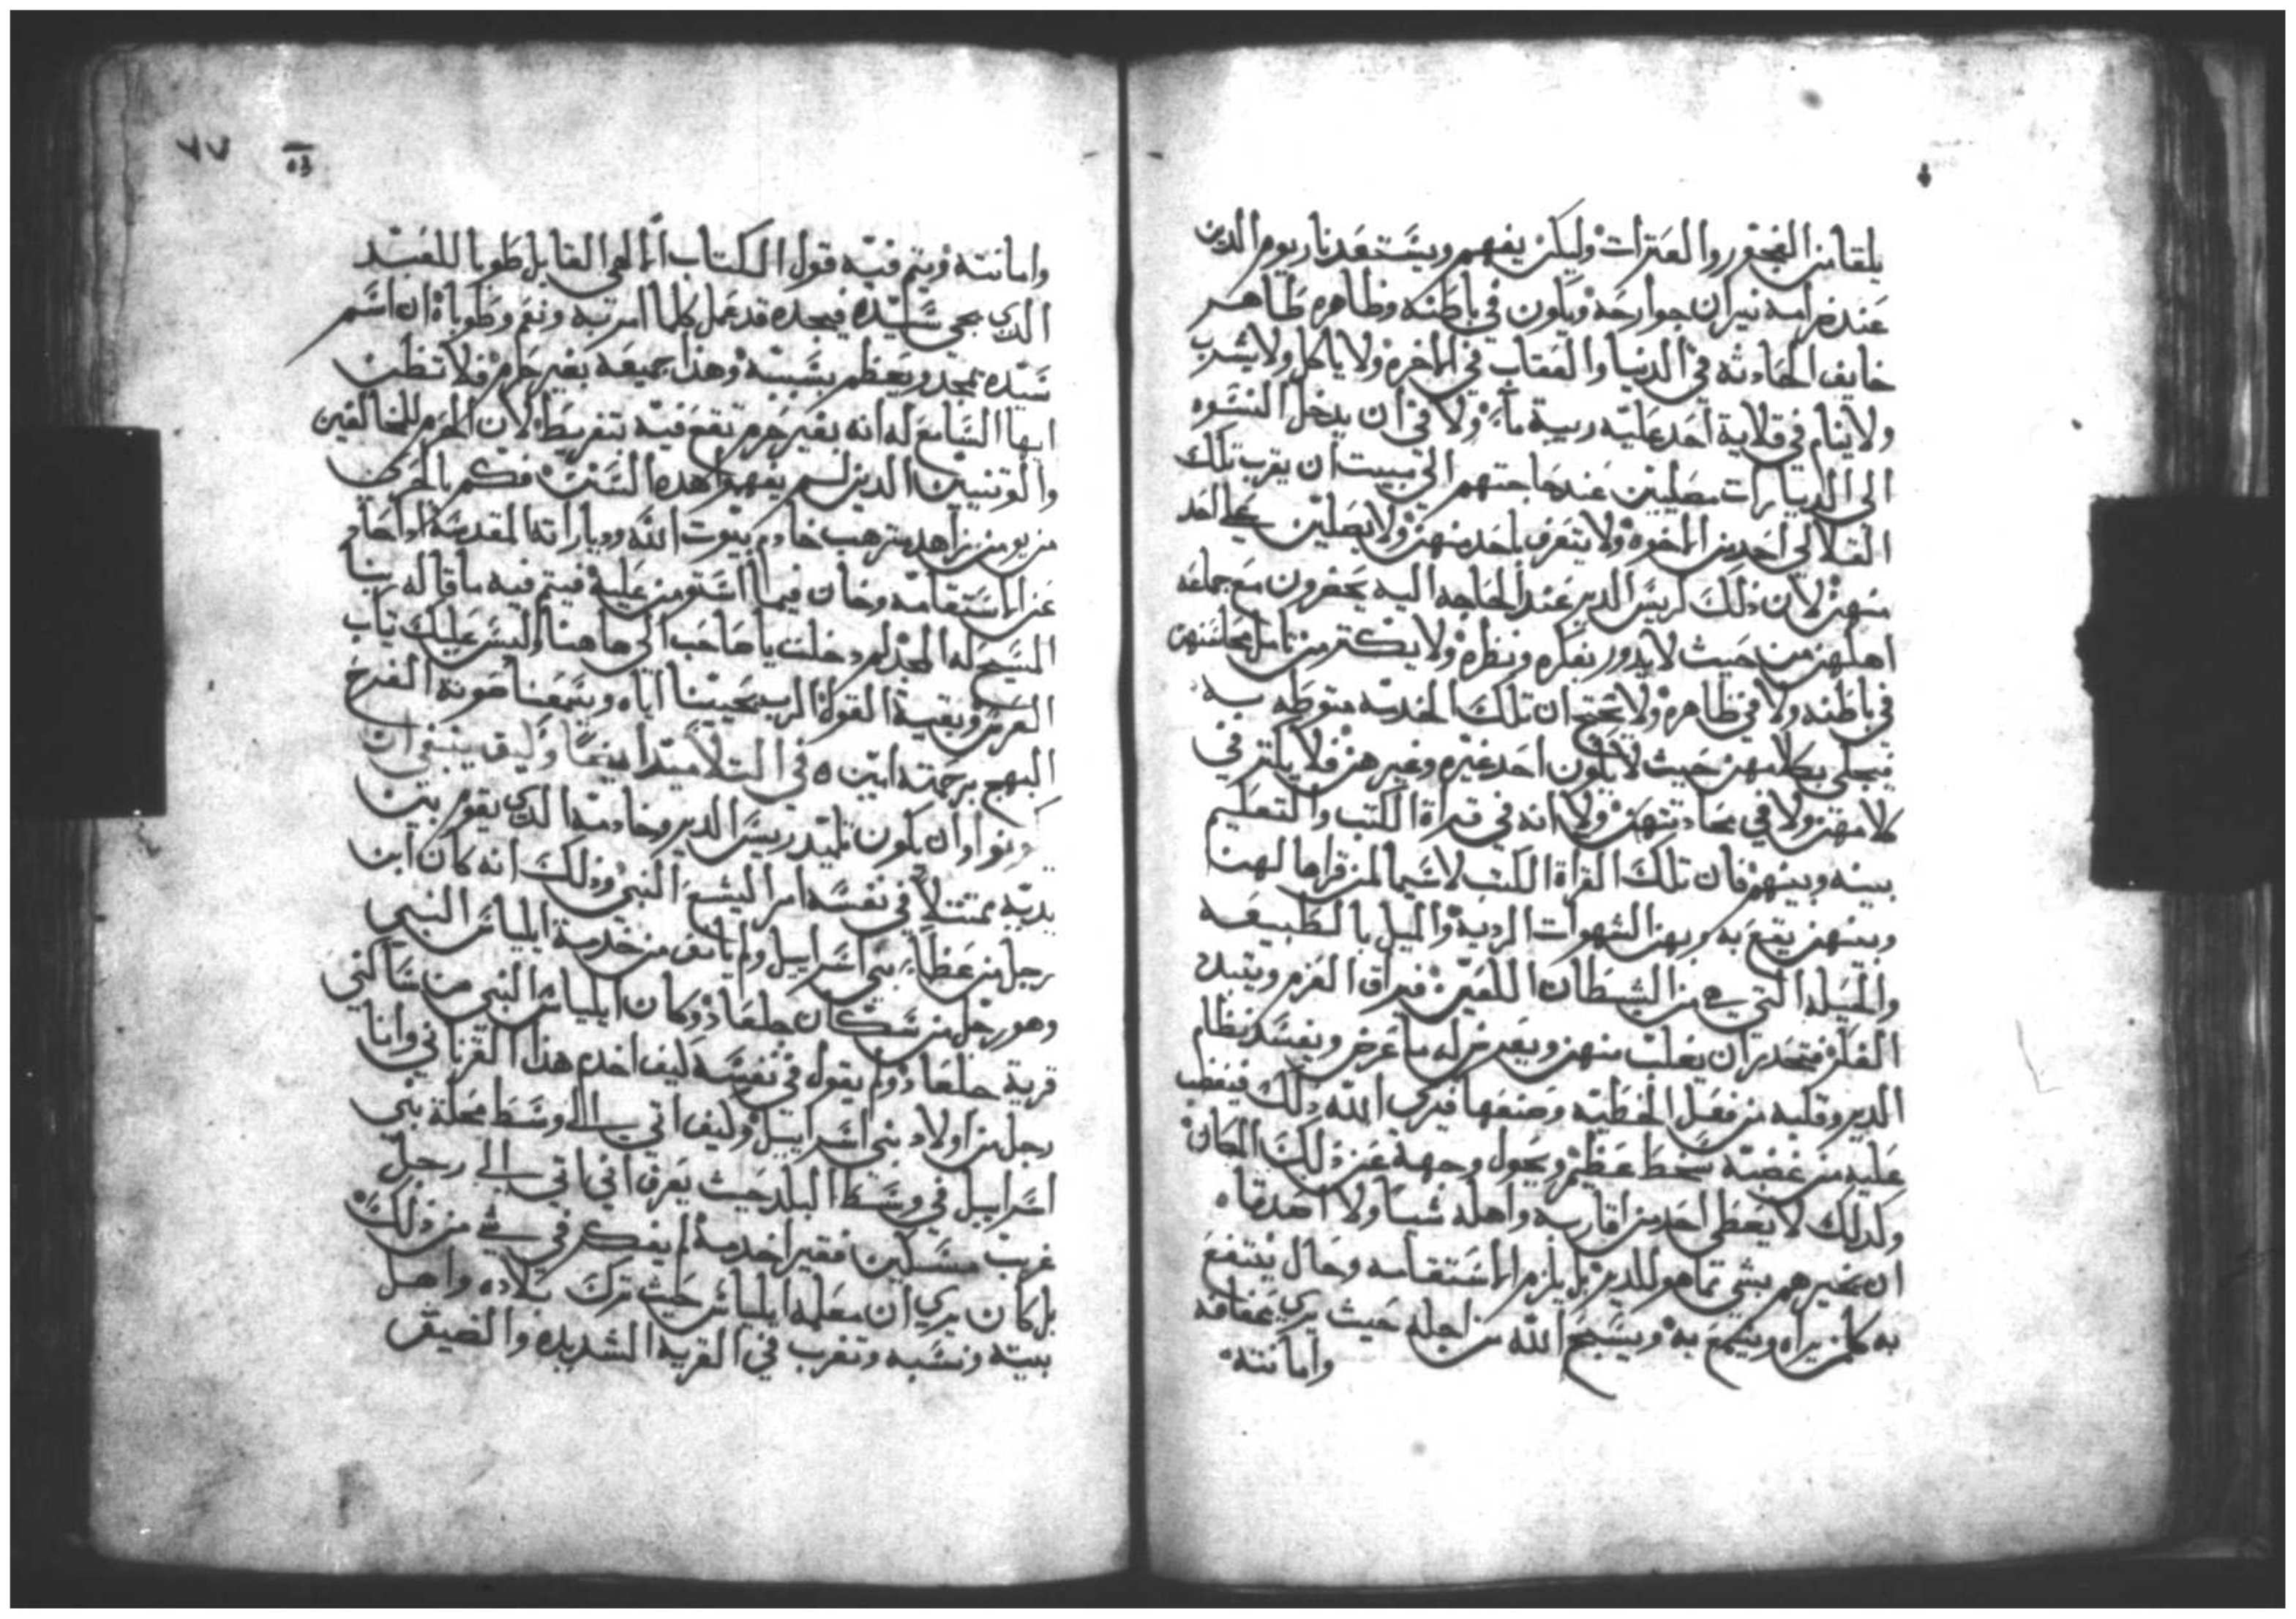 يلقا من الفجور والعترات وليكن يفهم ويستعد نار يوم الدين
عند ضرامه نيران جوارحه ويكون في باطنه وظاهره طاهر
خايف الحادثه في الدنيا والعقاب في الاخره ولا ياكل ولا يشرب
ولا ينام في قلاية احد عليه ريبة ما ولا في ان يدخل النسوه
الى الديارات مصليين عند حاجتهم الى مبيت ان يقرب تلك
القلالي احد من الاخوه ولا يتعرف باحد منهن ولا يصلين على احد
منهن لان ذلك لريس الدير عند الحاجه اليه يحضرون مع جماعه
اهلهن من حيث لا يدور بفكره ونظره ولا يكتر من تامل محاسنهن
في باطنه ولا في ظاهره ولا يحتج ان تلك الخدمه متوطه به
فيحلي بكلامهن حيث لا يكون احد غيره وغيرهن فلا يكتر في
كلامهن ولا في محادتتهن ولا انه في قراة الكتب والتعليم
بينه وبينهن فان تلك القراة الكتب لاسيما لمن قراها لهن
وبينهن يقع به وبهن الشهوات الرديه والميل بالطبيعه
والحيله التي هي من الشيطان اللعين فيراق العزم ويتبدد
الفكر فتحدر ان يغلب منهن ويصير غزله ما غرض ويفسد نظام
الدير وقلبه من فعل الخطيه وصنعها فيرى الله ذلك فيغضب
عليه من غضبه سخط عظيم ويحول وجهه عن ذلك المكان
ولذلك لا يعطي احد من اقاربه واهله شيا ولا اصدقاه
ان يخيرهم بشي مما هو للدير بل يلزم الاستقامه وحال ينتفع
به كلمن يراه ويسمع به ويسبح الله من اجله حيث يرى عفافه
وامانته
٧٧
وامانته ويتم فيه قول الكتاب الالهي القايل طوبا للعبد
الذي يجي سيده فيجده قد عمل كلما امر به ونعم وطوباه ان اسم
سيده يمجد ويعظم بسببه وهذا جميعه بغير جرم فلا تظن
ايها السامع له انه بغير جرم تقع فيه بتفريط لان الجرم للمخالفين
والوتنيين الدين لم يفهموا هده السنن فكم بالحرى
من يومن زاهد مترهب خادم بيوت الله ودياراته المقدسه ادا حاد
عن الاستقامه وخان فيما استومن عليه فيتم فيه ما قاله ربنا
المسيح له المجد لم دخلت يا صاحب الى هاهنا وليس عليك تياب
العرس وبقية القول الرب يحينا اياه ويسمعنا صوته الفرح
البهج برحمته امين ه في التلاميد ايضا وكيف ينبغي ان
يكونوا وان يكون تلميد ريس الدير وخادمه الدي يقوم بين
يديه ممتتلا في نفسه امر اليشع النبي وذلك انه كان ابن
رجل من عظما بني اسراييل ولم يانف من خدمة ايلياس النبي
وهو رجل من سكان جلعاد وكان ايلياس النبي من ساكني
قرية جلعاد ولم يقول في نفسه كيف اخدم هدا القرناني وانا
رجل من اولاد بني اسراييل وكيف اتي الى وسط محلة بني
اسراييل في وسط البلد حيث يعرف اني اتي الى رجل
غريب مسكين فقير اخدمه لم يفكر في شي من ذلك
بل كان يري ان معلمه ايلياس حيث ترك بلاده واهل
بيته ونسبه وتغرب في القريه الشديده والضيق